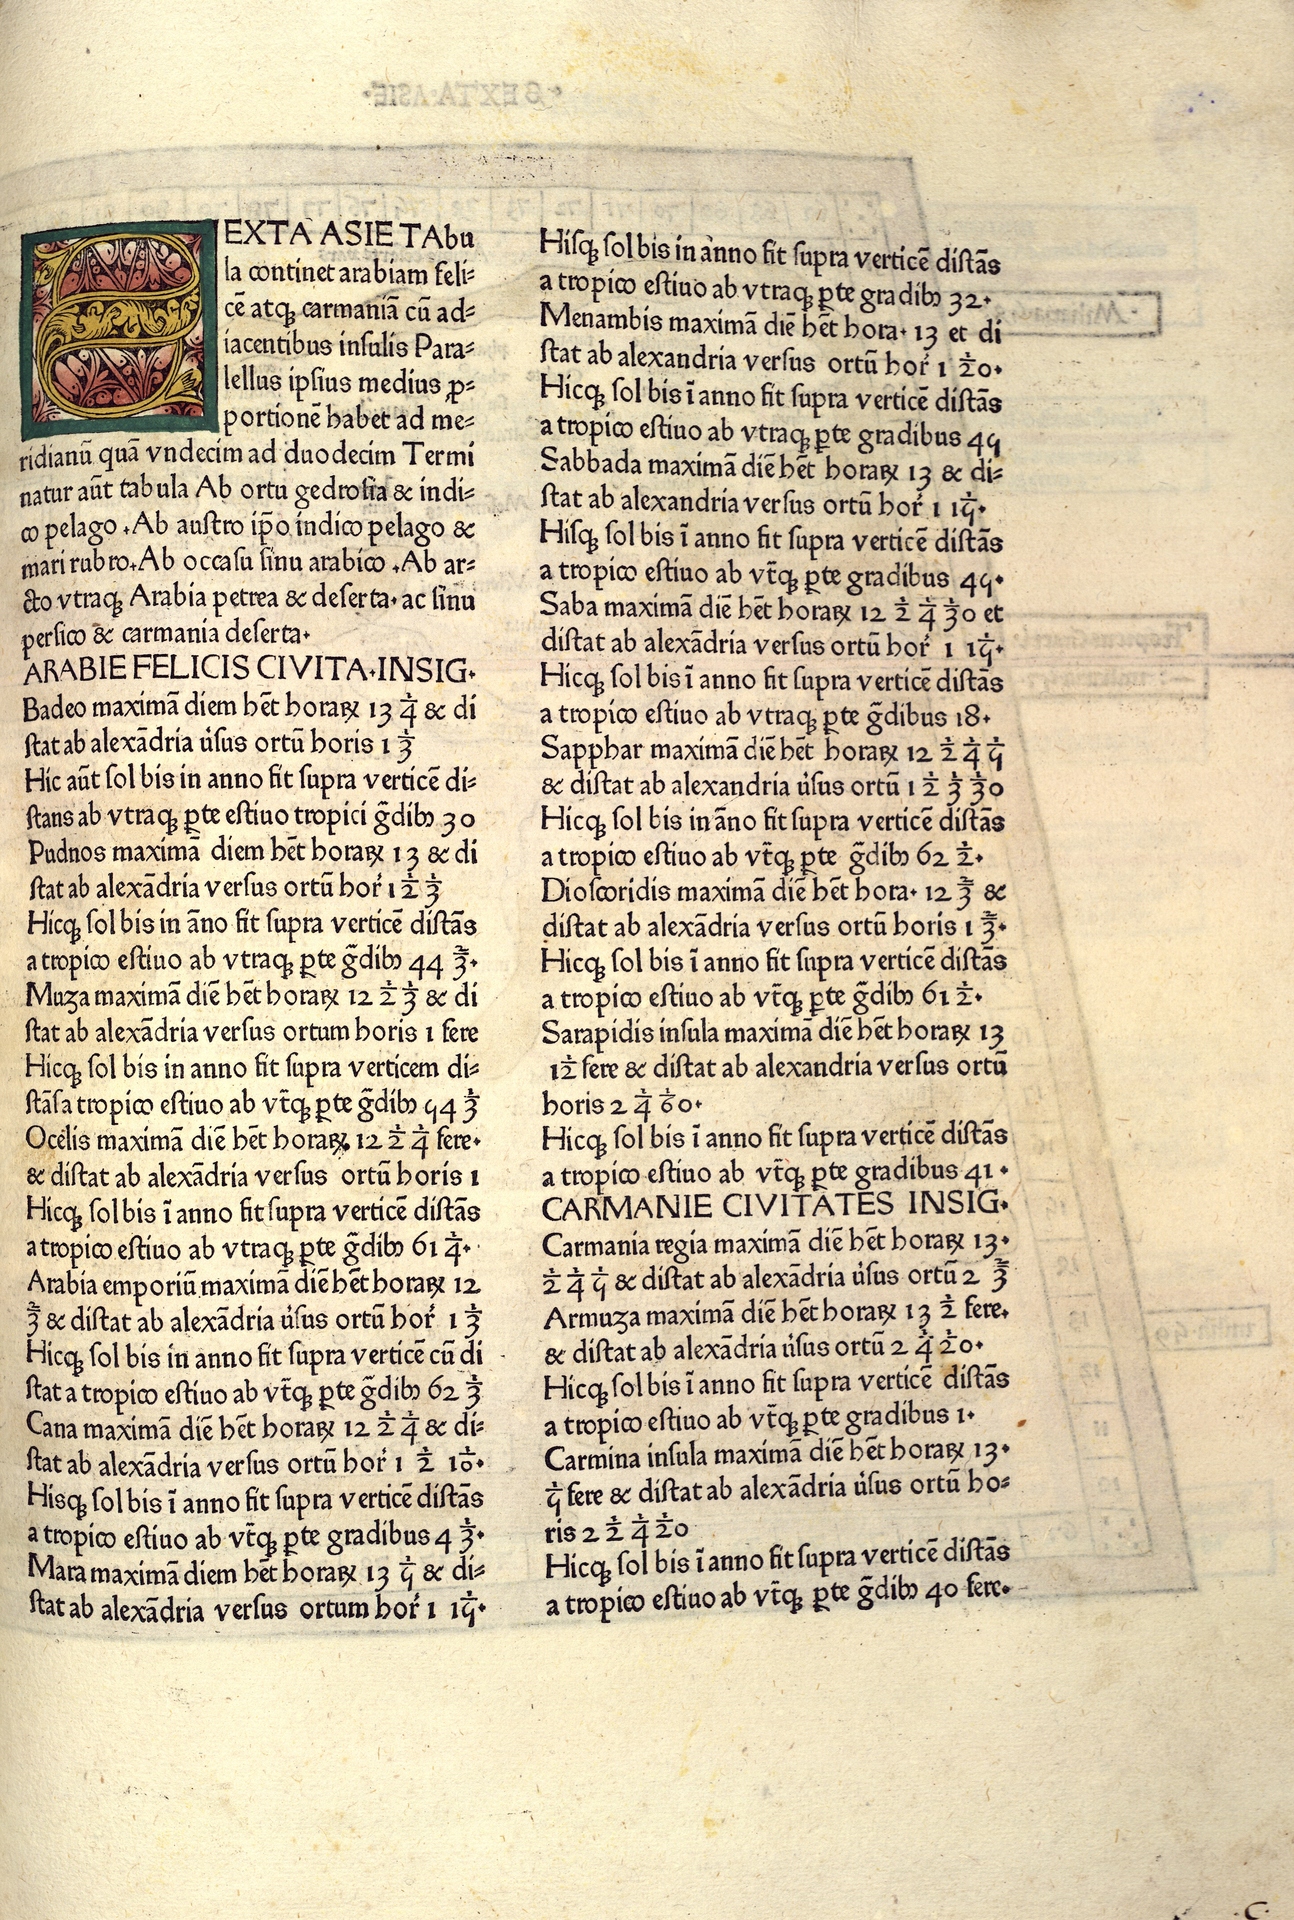 SEXTA ASIE TAbu
la continet arabiam feli=
cē atqꝫ carmaniā cū ad=
iacentibus insulis Para=
lellus ipsius medius ꝓ=
portionē habet ad me=
ridianū quā vndecim ad duodecim Termi
natur aūt tabula Ab ortu gedrosia & indi=
co pelago .Ab austro ip̄o indico pelago &
mari rubro.Ab occasu sinu arabico .Ab ar=
cto vtraqꝫ Arabia petrea & deserta. ac sinu
persico & carmania deserta.
ARABIE FELICIS CIVITA.INSIG.
Badeo maximā diem hēt horaꝝ 13 1/4 & di
stat ab alexādria u̓sus ortū horis 1 1/3
Hic aūt sol bis in anno fit supra verticē di=
stans ab vtraqꝫ ꝑte estiuo tropici g̃dibꝰ 30
Pudnos maximā diem hēt horaꝝ 13 & di
stat ab alexādria versus ortū hor̓ 1 1/2 1/3
Hicqꝫ sol bis in āno fit supra verticē distās
a tropico estiuo ab vtraqꝫ ꝑte g̃dibꝰ 44 2/3.
Muza maximā diē hēt horaꝝ 12 1/2 1/3 & di
stat ab alexādria versus ortum horis 1 fere
Hicqꝫ sol bis in anno fit supra verticem di=
stāsa tropico estiuo ab vt̄qꝫ ꝑte g̃dibꝰ 54 1/3
Ocelis maximā diē hēt horaꝝ 12 1/2 1/4 fere.
& distat ab alexādria versus ortū horis 1
Hicqꝫ sol bis ī anno fit supra verticē distās
a tropico estiuo ab vtraqꝫ ꝑte g̃dibꝰ 61 1/4.
Arabia emporiū maximā diē hēt horaꝝ 12
2/3 & distat ab alexādria u̓sus ortū hor̓ 1 1/3
Hicqꝫ sol bis in anno fit supra verticē cū di
stat a tropico estiuo ab vt̄qꝫ ꝑte g̃dibꝰ 62 1/3
Cana maximā diē hēt horaꝝ 12 1/2 1/4 & di=
stat ab alexādria versus ortū hor̓ 1 1/2 1/10.
Hisqꝫ sol bis ī anno fit supra verticē distās
a tropico estiuo ab vt̄qꝫ ꝑte gradibus 4 1/3.
Mara maximā diem hēt horaꝝ 13 1/5 & di=
stat ab alexādria versus ortum hor̓ 1 1/15.
Hisqꝫ sol bis in anno fit supra verticē distās
a tropico estiuo ab vtraqꝫ ꝑte gradibꝰ 32.
Menambis maximā diē hēt hora. 13 et di
stat ab alexandria versus ortū hor̓ 1 1/20.
Hicqꝫ sol bis ī anno fit supra verticē distās
a tropico estiuo ab vtraqꝫ ꝑte gradibus 45
Sabbada maximā diē hēt horaꝝ 13 & di=
stat ab alexandria versus ortū hor̓ 1 1/15.
Hisqꝫ sol bis ī anno fit supra verticē distās
a tropico estiuo ab vt̄qꝫ ꝑte gradibus 45.
Saba maximā diē hēt horaꝝ 12 1/2 1/4 1/30 et
distat ab alexādria versus ortū hor̓ 1 1/15.
Hicqꝫ sol bis ī anno fit supra verticē distās
a tropico estiuo ab vtraqꝫ ꝑte g̃dibus 18.
Sapphar maximā diē hēt horaꝝ 12 1/2 1/4 1/5
& distat ab alexandria u̓sus ortū 1 1/2 1/3 1/30
Hicqꝫ sol bis in āno fit supra verticē distās
a tropico estiuo ab vt̄qꝫ ꝑte g̃dibꝰ 62 1/2.
Dioscoridis maximā diē hēt hora. 12 2/3 &
distat ab alexādria versus ortū horis 1 2/3.
Hicqꝫ sol bis ī anno fit supra verticē distās
a tropico estiuo ab vt̄qꝫ ꝑte g̃dibꝰ 61 1/2.
Sarapidis insula maximā diē hēt horaꝝ 13
1/12 fere & distat ab alexandria versus ortū
horis 2 1/4 1/60.
Hicqꝫ sol bis ī anno fit supra verticē distās
a tropico estiuo ab vt̄qꝫ ꝑte gradibus 41.
CARMANIE CIVITATES INSIG.
Carmania regia maximā diē hēt horaꝝ 13.
1/2 1/4 1/5 & distat ab alexādria u̓sus ortū 2 2/3
Armuza maximā diē hēt horaꝝ 13 1/2 fere.
& distat ab alexādria u̓sus ortū 2 1/4 1/20.
Hicqꝫ sol bis ī anno fit supra verticē distās
a tropico estiuo ab vt̄qꝫ ꝑte gradibus 1.
Carmina insula maximā diē hēt horaꝝ 13.
1/5 fere & distat ab alexādria u̓sus ortū ho=
ris 2 1/2 1/4 1/20
Hicqꝫ sol bis ī anno fit supra verticē distās
a tropico estiuo ab vt̄qꝫ ꝑte g̃dibꝰ 40 fere.